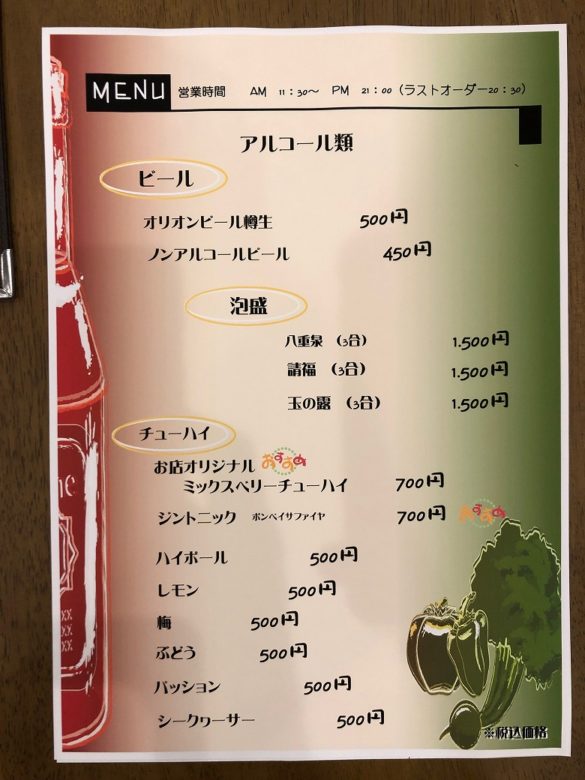 MENU 営業時間 AM 11:30〜 PM 21:00(ラストオーダー20:30)
アルコール類
ビール
オリオンビール樽生 500円
ノンアルコールビール 450円
泡盛
八重泉 (3合) 1.500円
請福 (3合) 1.500円
玉の露 (3合) 1.500円
チューハイ
お店オリジナル おすすめ
ミックスベリーチューハイ 700円
ジントニック ボンベイサファイヤ 700円 おすすめ
ハイボール 500円
レモン 500円
梅 500円
ぶどう 500円
パッション 500円
シークヮーサー 500円
※税込価格